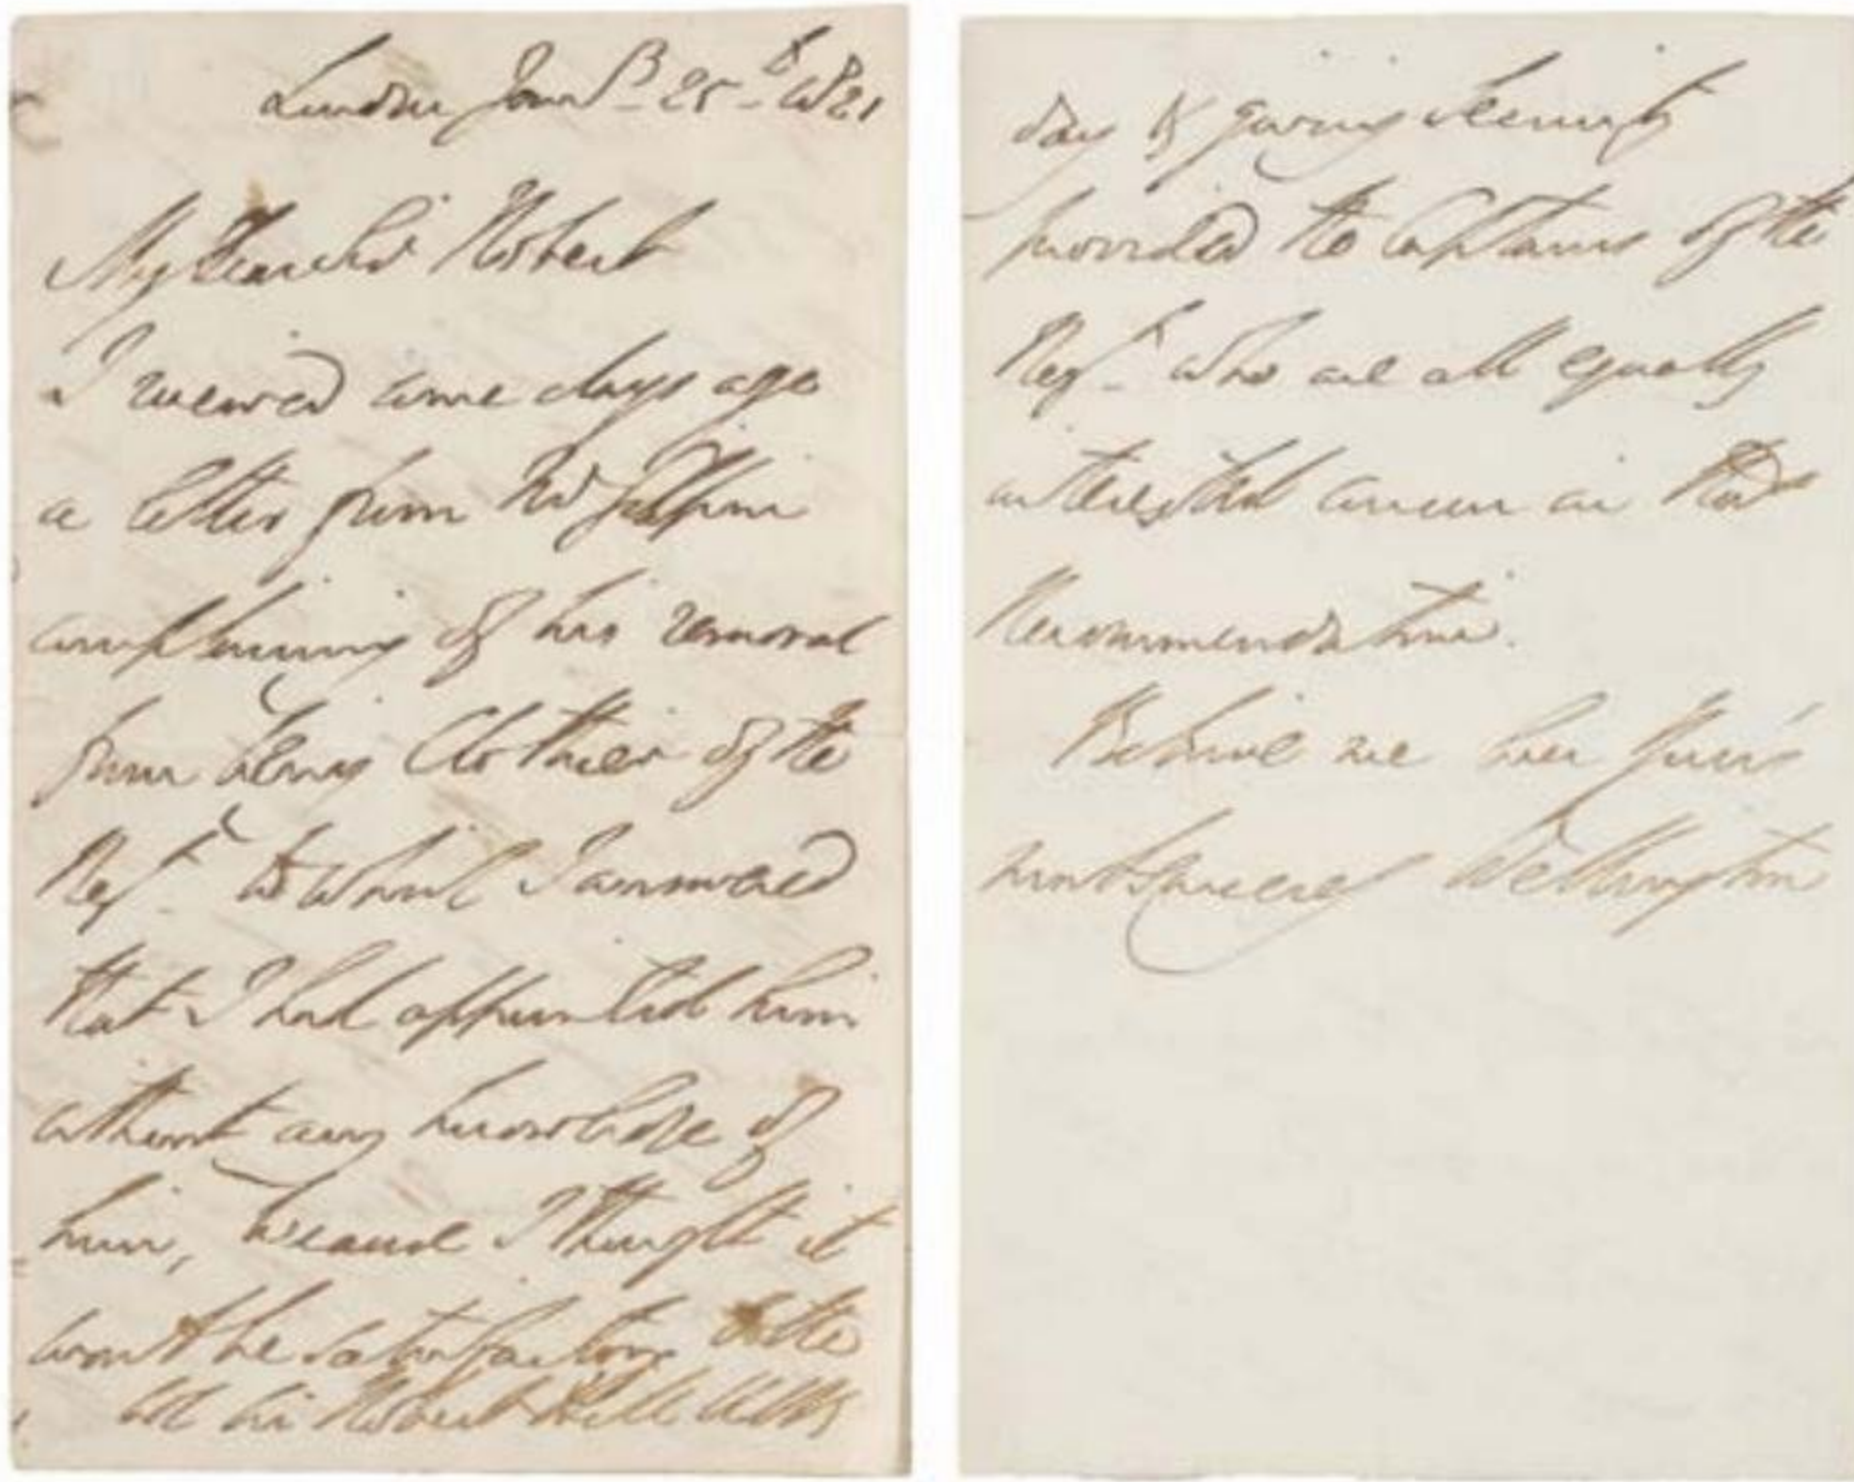 London Jan.ʸ 25.ᵗʰ 1821
My Dear Sir Robert
I received some days ago
a letter from
complaining of his removal
from being Clothier of the
Regᵗ to which I answered
that I had appointed him
without any knowledge of
him, because I thought it
would be satisfactory to the
Col Sir Robert Hill
day of giving Security
provided the Captains of the
Regᵗ who are all equally
interested concur in the
Recommendation.
Believe me ever Yours
most Sincerely Wellington